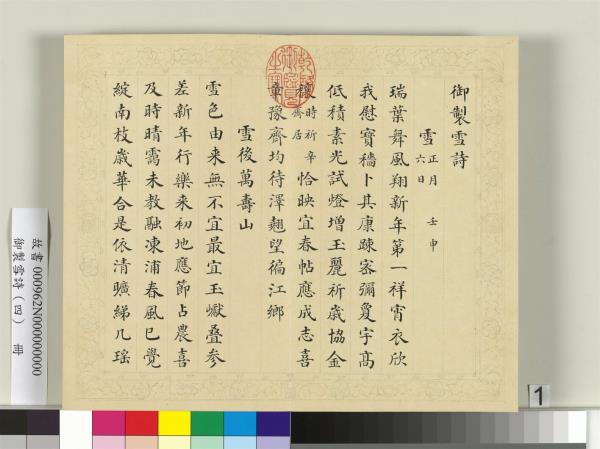 御製雪詩
雪 正月六日 壬申
瑞葉舞風翔新年第一祥宵衣欣
我慰寶穡卜其康踈密彌夐宇高
低積素光試燈增玉麗祈歲協金
穰 時祈辛齋居 恰映宜春帖應成志喜
章豫齊均待澤翹望徧江鄉
雪後萬壽山
雪色由來無不宜最宜玉巘疊參
差新年行樂來初地應節占農喜
及時晴靄未教融凍浦春風已覺
綻南枝歲華合是依清曠綈几瑶
故書000962N000000000
御製雪詩(四) 冊
1